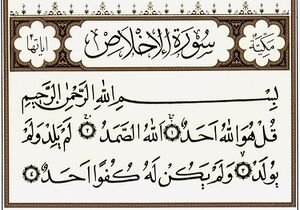 مكية سورة الإخلاص آياتها
بِسْمِ اللَّهِ الرَّحْمَٰنِ الرَّحِيمِ
قُلْ هُوَ اللَّهُ أَحَدٌ ١ اللَّهُ الصَّمَدُ ٢ لَمْ يَلِدْ وَلَمْ
يُولَدْ ٣ وَلَمْ يَكُنْ لَهُ كُفُوًا أَحَدٌ ٤